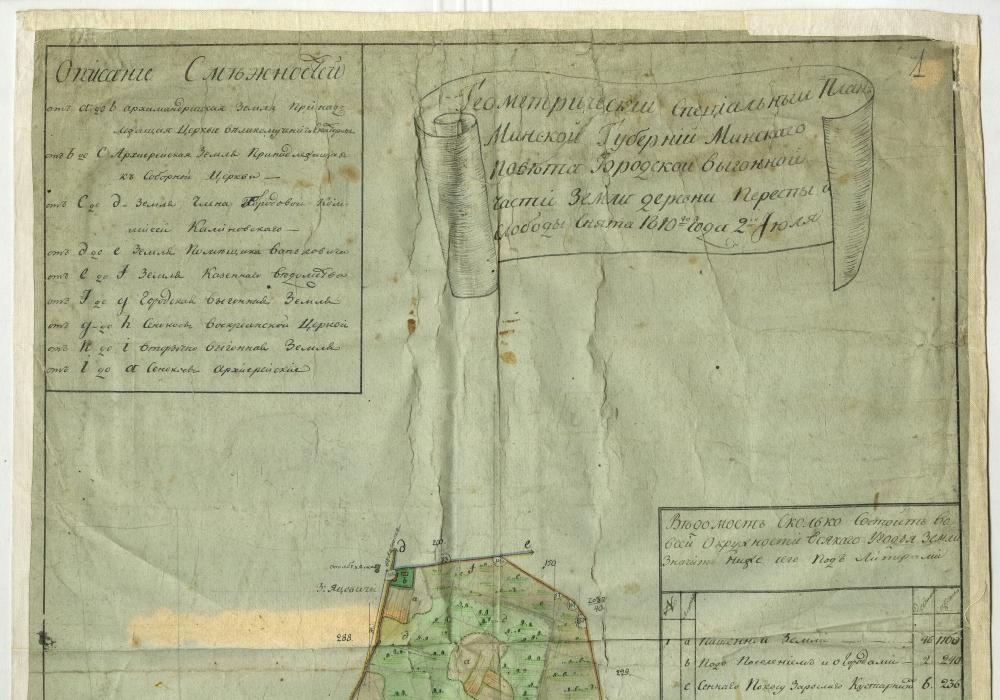 1
Описание Смѣжностей
отъ a до b архимандрическая Земля Принад-
лежащая Церкви
отъ b до C Архиерейская Земля Принадлежащая
къ Соборной Церкви
отъ C до д Земля Члена Городовой Ком-
мисеи Калиновскаго
отъ д до e Земля Помѣщика Ваньковича
отъ e до f Земля Казеннаго Вѣдомства
отъ f до g Городская Выгонная Земля
отъ g до h Сенокосы Воскресенской Церкви
отъ h до i вторично выгонная Земля
отъ i до a Сенокосы Архиерейские
Геометрический Специальный План
Минской Губернии Минскаго
Повѣта Городской Выгонной
части Земли деревни Пересты и
слободы Снята 1810го Года 2 Июля
Вѣдомость Сколько Состоитъ во
всей Окружности Всякаго Угодья Земли
Значитъ ниже сего Подъ Литерами
№
1 a Пашенной Земли 46 1100
b Подъ Поселениемъ и огородами 2 240
c Сеннаго Покосу Зарослаго Кустарникомъ 6 236
д
200
e
f
150
З: Яцовичи
a
288
д
a